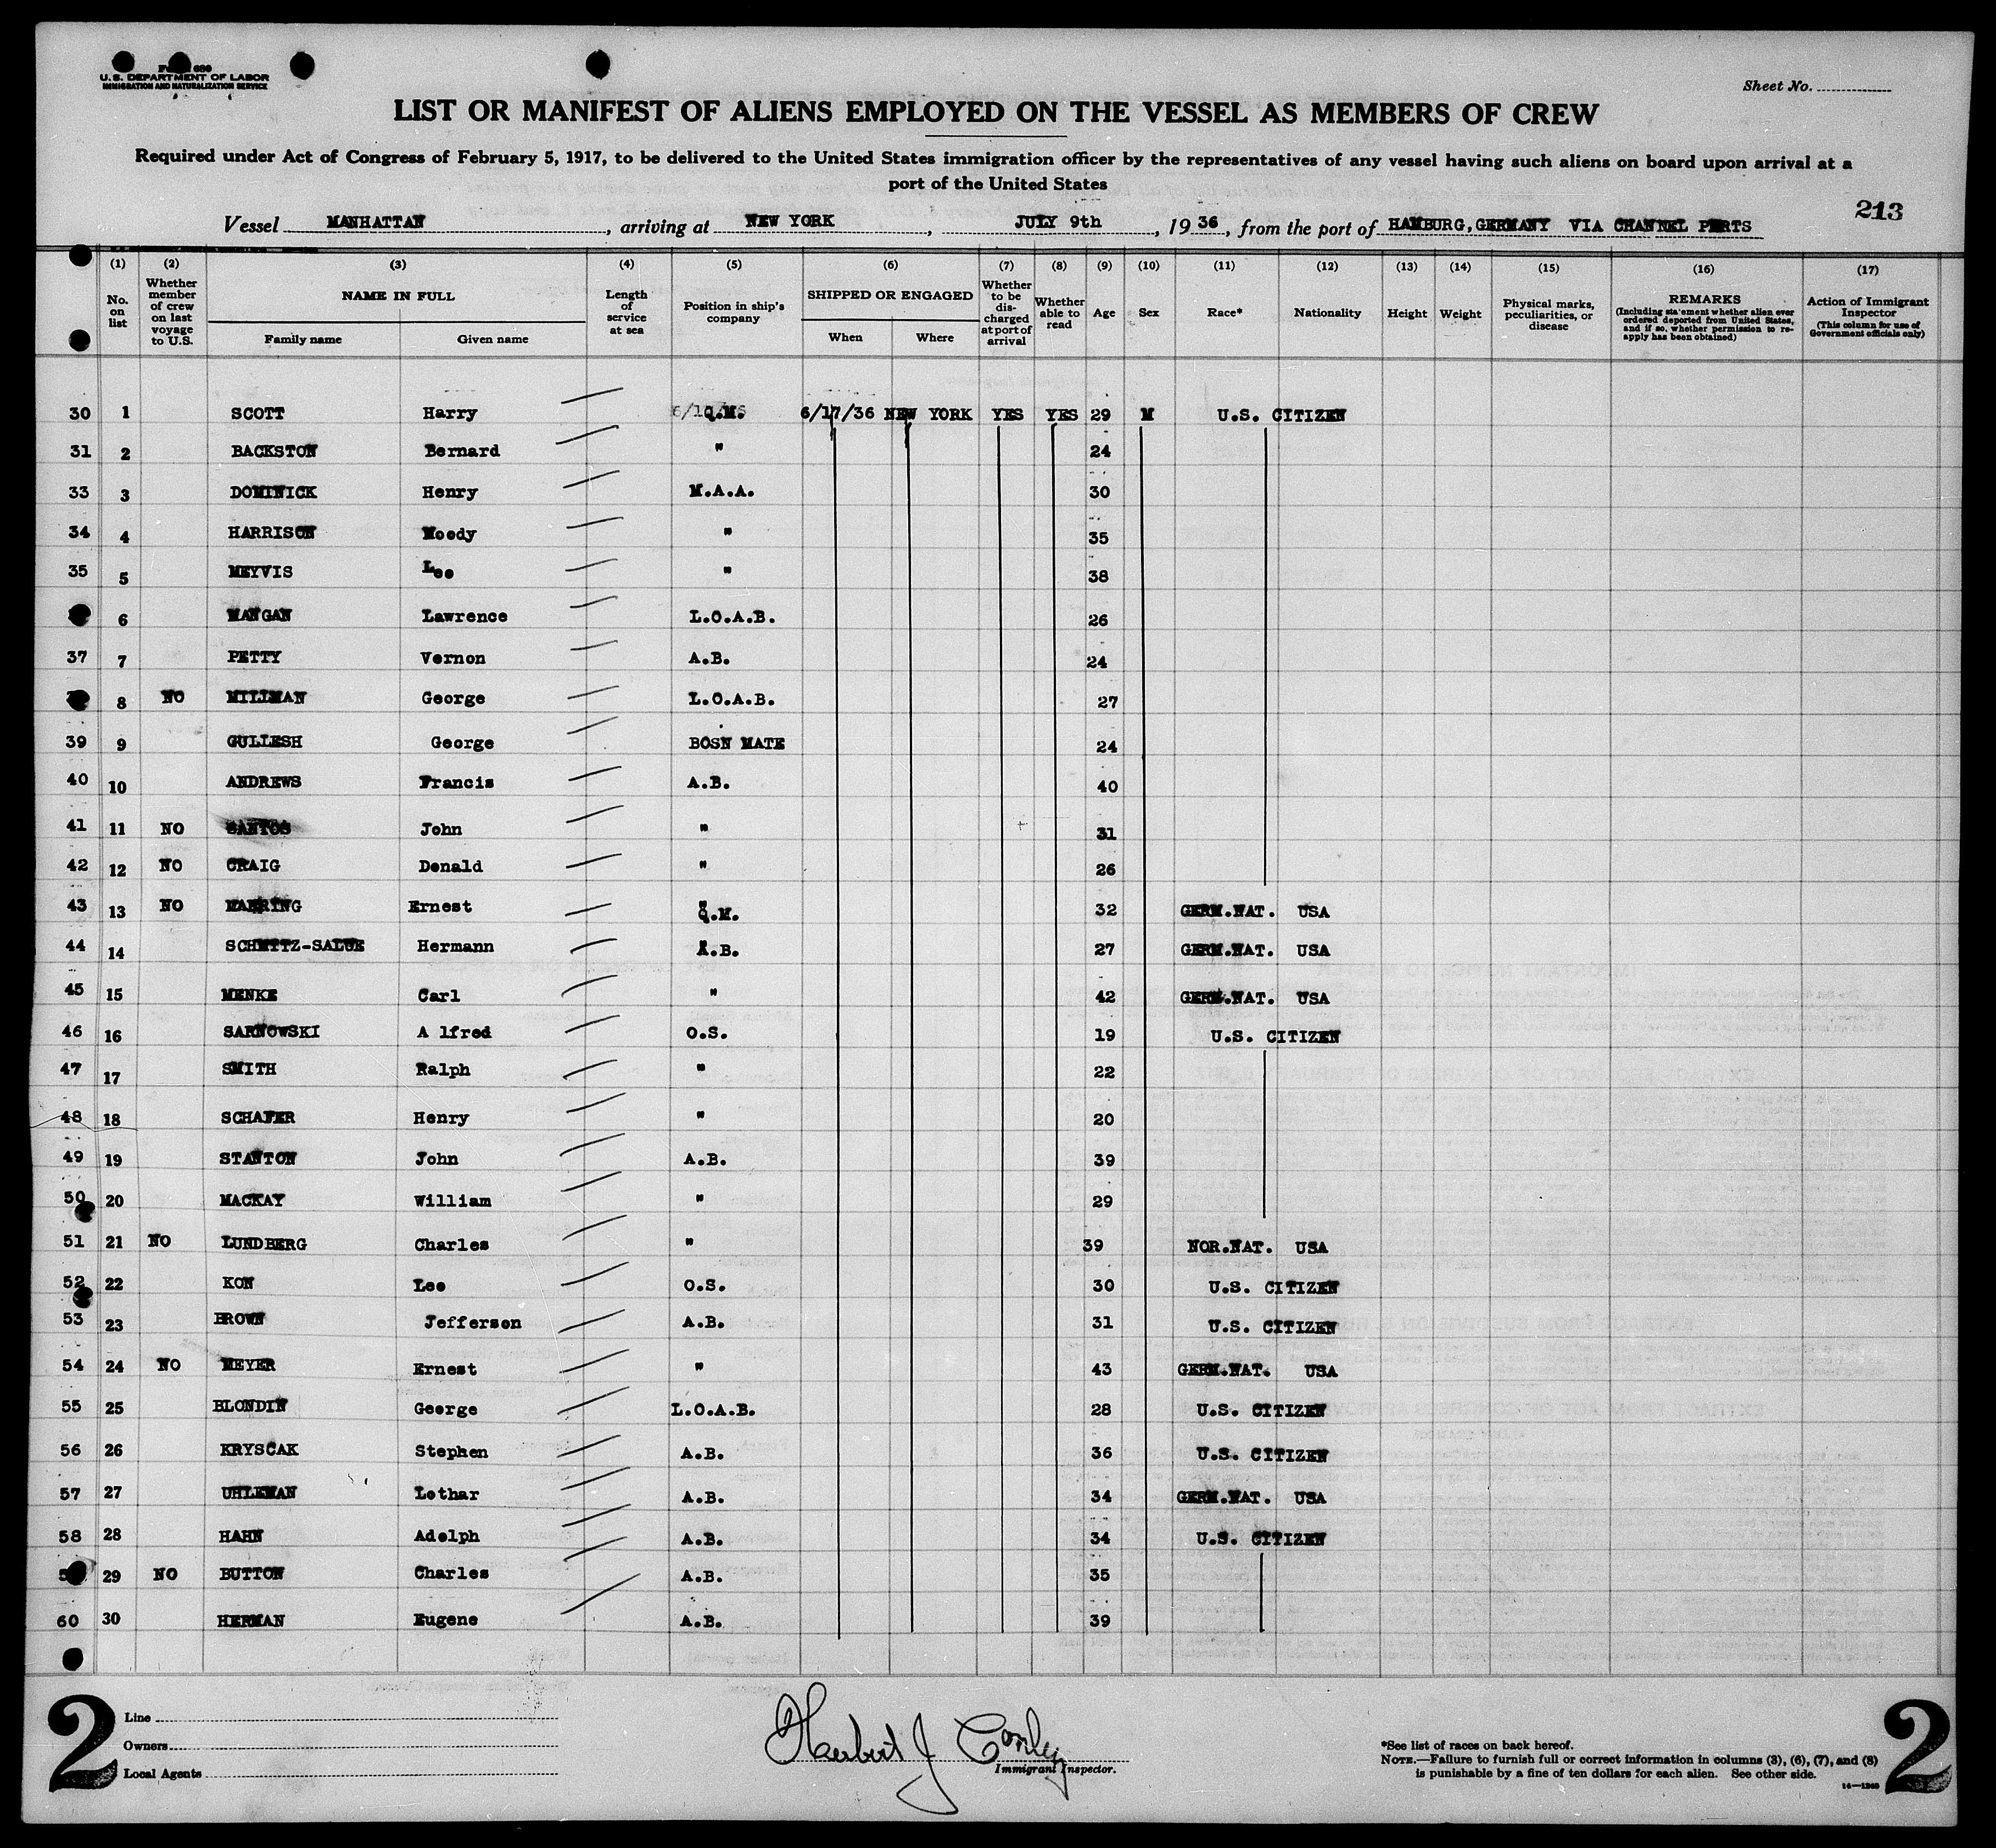 U.S. DEPARTMENT OF LABOR
IMMIGRATION AND NATURALIZATION SERVICE
Sheet No.
LIST OR MANIFEST OF ALIENS EMPLOYED ON THE VESSEL AS MEMBERS OF CREW
Required under Act of Congress of February 5, 1917, to be delivered to the United States immigration officer by the representatives of any vessel having such aliens on board upon arrival at a
port of the United States
213
Vessel MANHATTAN, arriving at NEW YORK, JULY 9th, 1936, from the port of HAMBURG, GERMANY VIA CHANNEL PORTS
(1) (2) (3) (4) (5) (6) (7) (8) (9) (10) (11) (12) (13) (14) (15) (16) (17)
No. on list
Whether member of crew on last voyage to U.S.
NAME IN FULL
Family name Given name
Length of service at sea
Position in ship's company
SHIPPED OR ENGAGED
When Where
Whether to be discharged at port of arrival
Whether able to read
Age
Sex
Race*
Nationality
Height
Weight
Physical marks, peculiarities, or disease
REMARKS
(Including statement whether alien ever ordered deported from United States, and if so, whether permission to re-apply has been obtained)
Action of Immigrant Inspector
(This column for use of Government officials only)
30 1 SCOTT Harry Q.M. 6/17/36 NEW YORK YES YES 29 M U.S. CITIZEN
31 2 BACKSTON Bernard " 24
33 3 DOMINICK Henry M.A.A. 30
34 4 HARRISON Moody " 35
35 5 MEYVIS Lee " 38
6 MANGAN Lawrence L.O.A.B. 26
37 7 PETTY Vernon A.B. 24
8 NO MILLMAN George L.O.A.B. 27
39 9 GULLESH George BOSN MATE 24
40 10 ANDREWS Francis A.B. 40
41 11 NO SANTOS John " 31
42 12 NO CRAIG Donald " 26
43 13 NO Ernest Q.M. 32 GERM.NAT. USA
44 14 SCHMITZ-SALUE Hermann A.B. 27 GERM.NAT. USA
45 15 MENKE Carl " 42 GERM.NAT. USA
46 16 SARNOWSKI A lfred O.S. 19 U.S. CITIZEN
47 17 SMITH Ralph " 22
48 18 SCHAFER Henry " 20
49 19 STANTON John A.B. 39
50 20 MACKAY William " 29
51 21 NO LUNDBERG Charles " 39 NOR.NAT. USA
52 22 KON Lee O.S. 30 U.S. CITIZEN
53 23 BROWN Jefferson A.B. 31 U.S. CITIZEN
54 24 NO MEYER Ernest " 43 GERM.NAT. USA
55 25 BLONDIN George L.O.A.B. 28 U.S. CITIZEN
56 26 KRYSCAK Stephen A.B. 36 U.S. CITIZEN
57 27 UHLEMAN Lothar A.B. 34 GERM.NAT. USA
58 28 HAHN Adolph A.B. 34 U.S. CITIZEN
29 NO BUTTON Charles A.B. 35
60 30 HERMAN Eugene A.B. 39
2
Line
Owners
Local Agents
Herbert J Conley
Immigrant Inspector.
*See list of races on back hereof.
NOTE.—Failure to furnish full or correct information in columns (3), (6), (7), and (8)
is punishable by a fine of ten dollars for each alien. See other side.
2